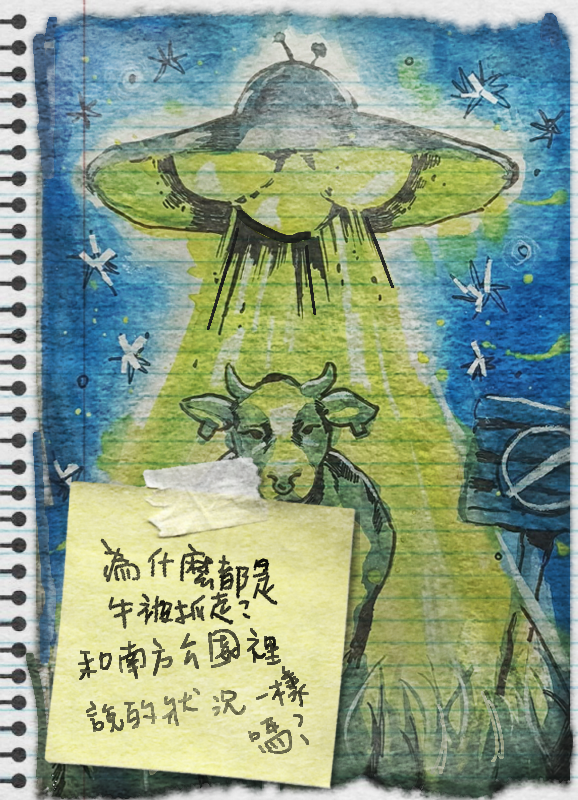 為什麼都是
牛被抓走？
和南方公園裡
說的狀況一樣
嗎？